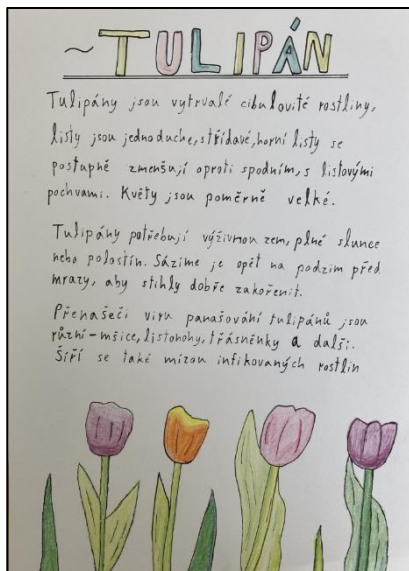 ~TULIPÁN
Tulipány jsou vytrvalé cibulovité rostliny,
listy jsou jednoduche, střídavé, horní listy se
postupně zmenšují oproti spodním, s listovými
pochvami. Květy jsou poměrně velké.
Tulipány potřebují výživnou zem, plné slunce
nebo polostín. Sázíme je opět na podzim před
mrazy, aby stihly dobře zakořenit.
Přenašeči viru panašování tulipánů jsou
různí - mšice, listonohy, třásněnky a další.
Šíří se také mízou infikovaných rostlin